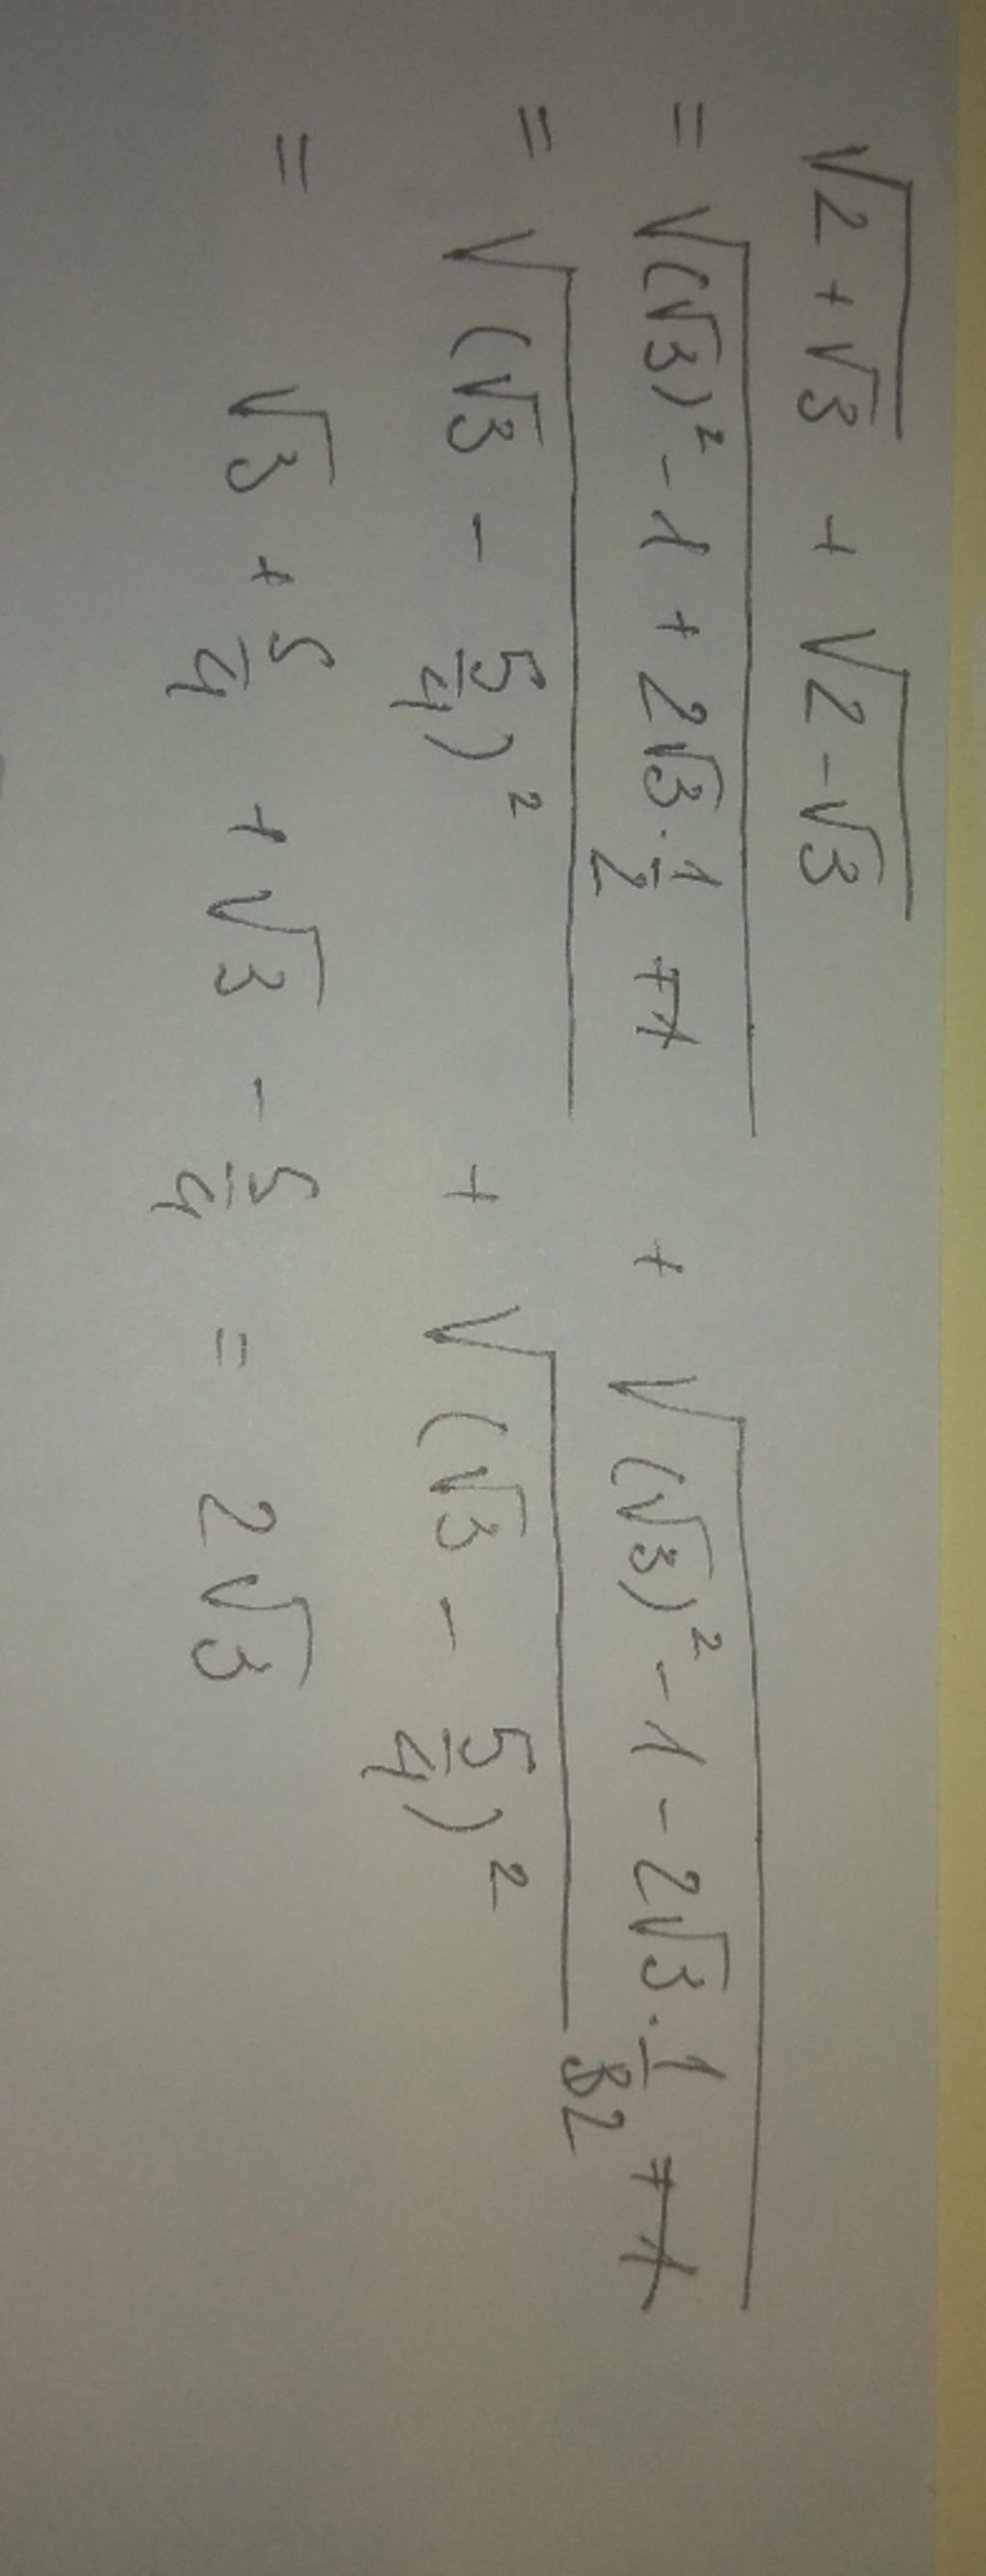 √(2+√3) + √(2-√3)
= √((√3)² - 1 + 2√3 · 1/2 + 1) + √((√3)² - 1 - 2√3 · 1/2 + 1)
= √((√3 - 5/4)²) + √((√3 - 5/4)²)
= √3 + 5/4 + √3 - 5/4 = 2√3